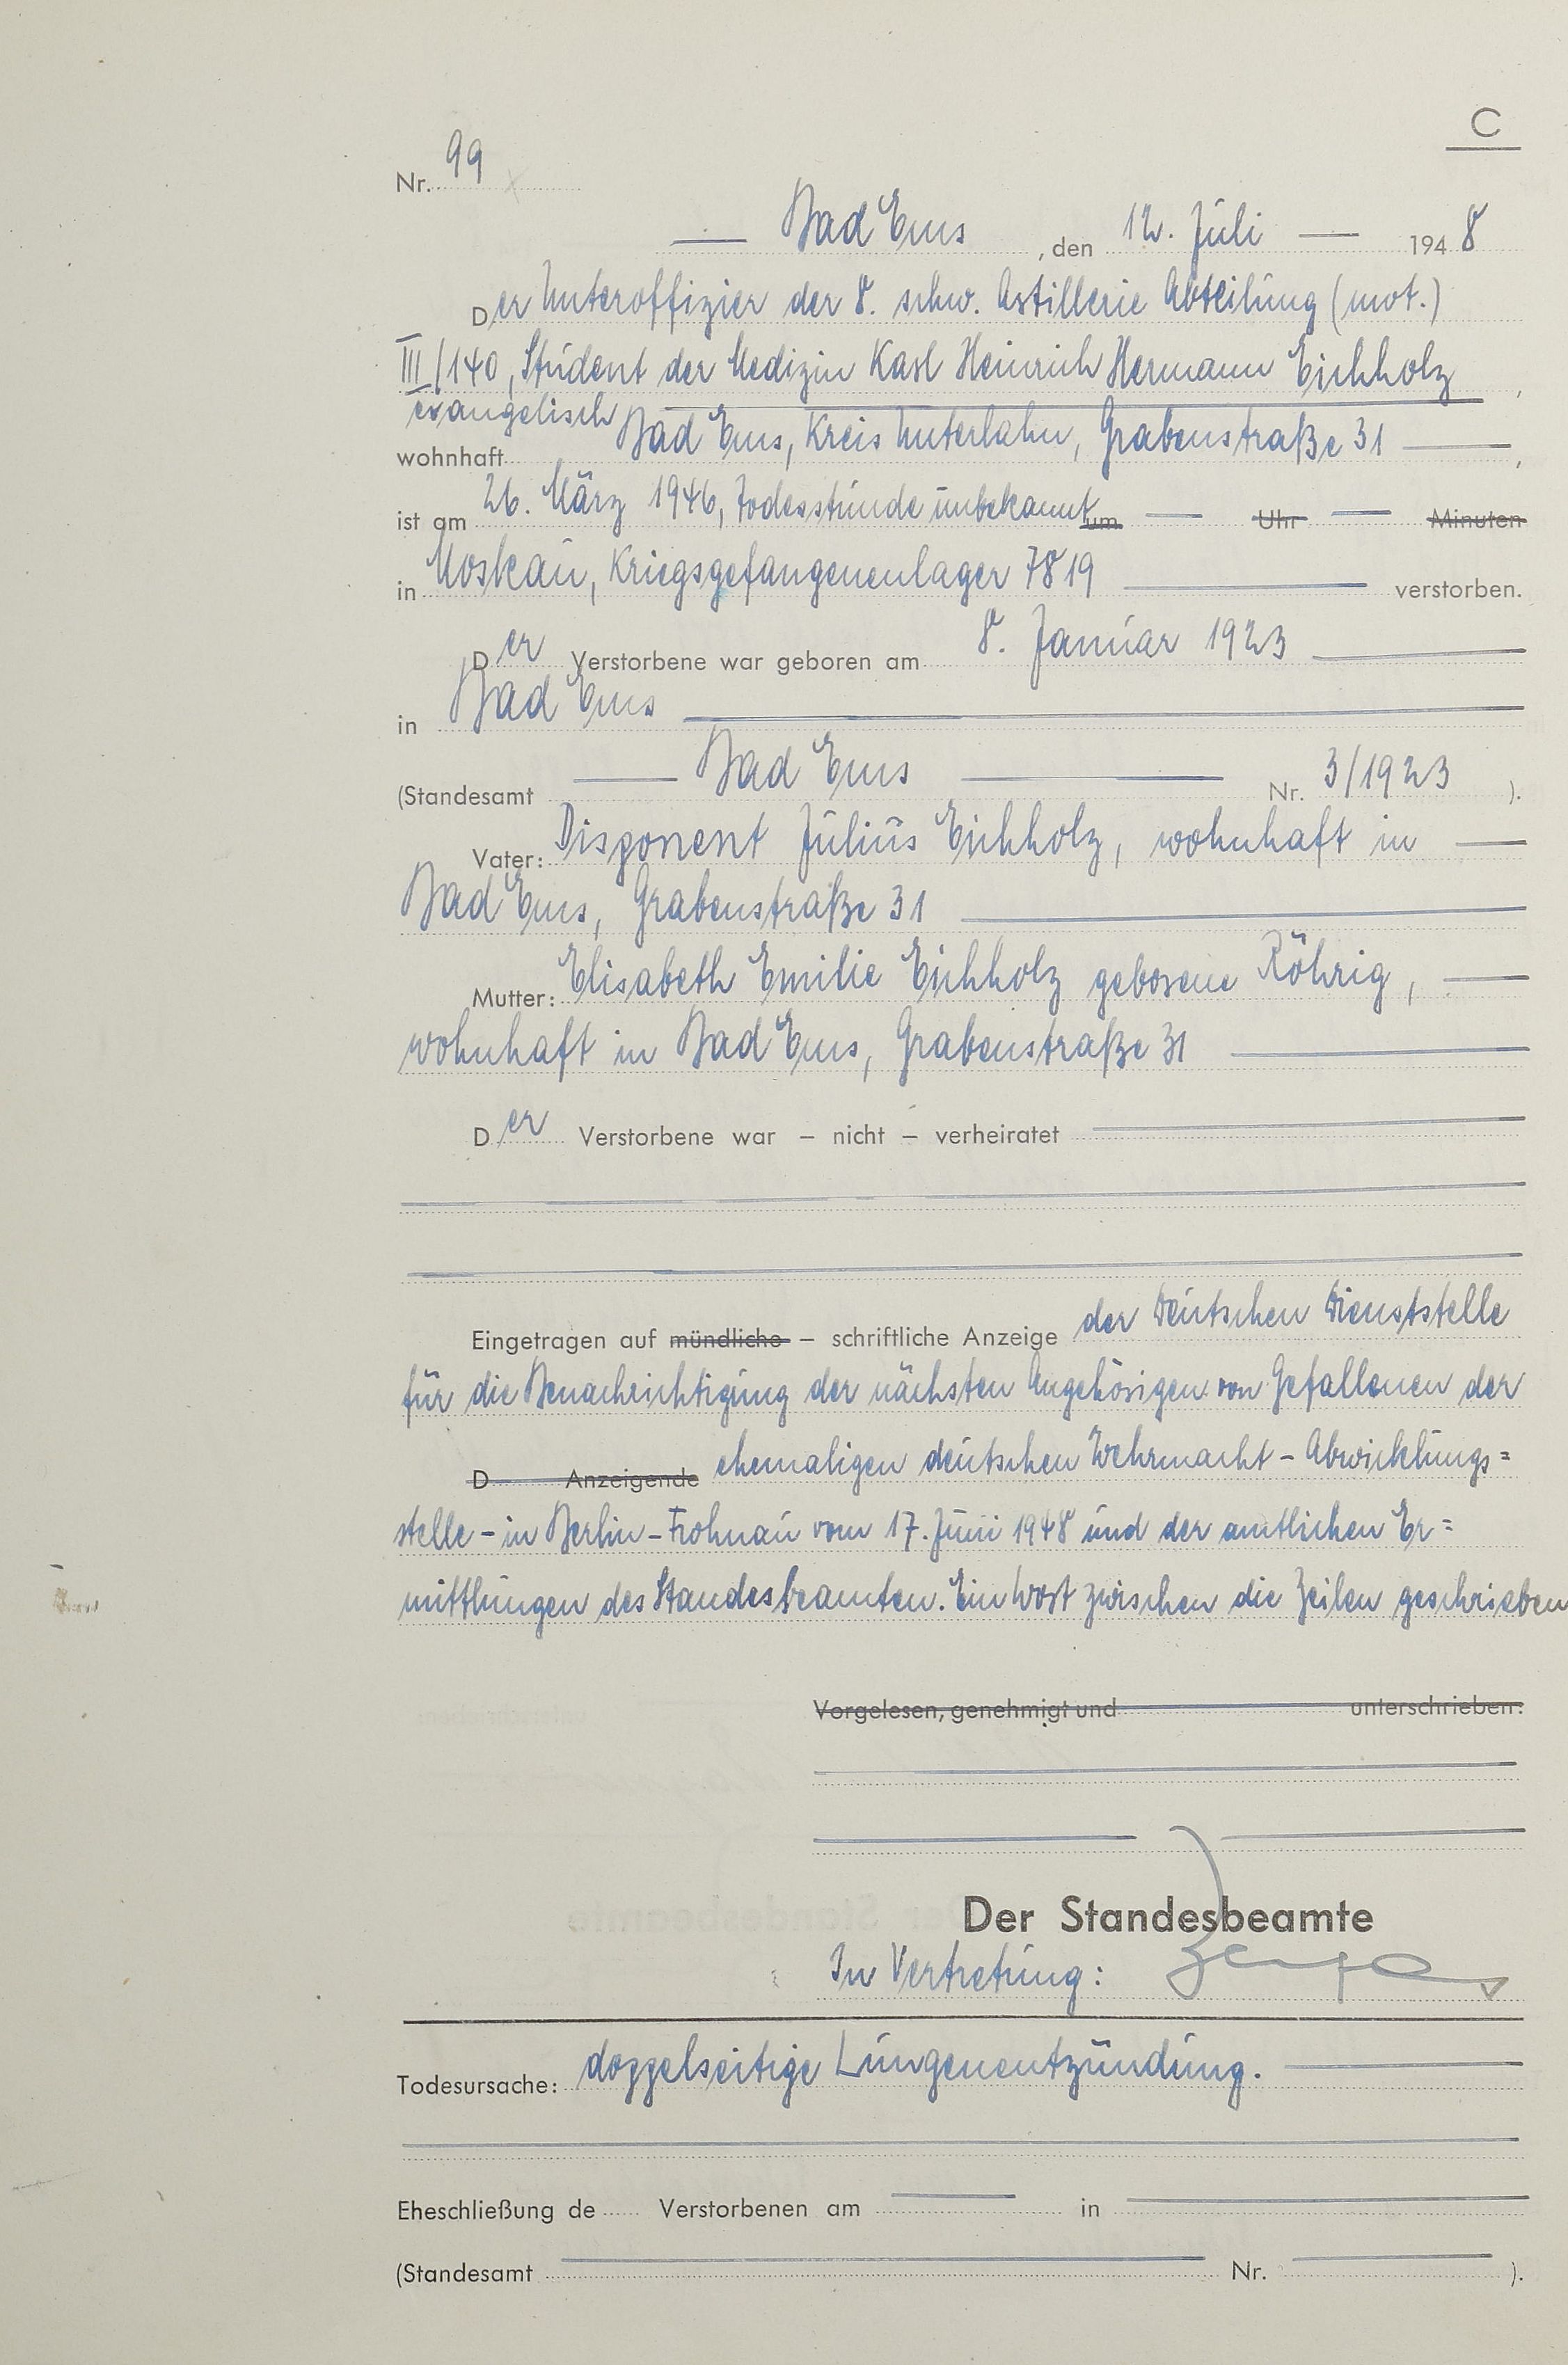 C
Nr. 99
— Bad Ems, den 12. Juli — 1948
Der Unteroffizier der 8. schw. Artillerie Abteilung (mot.)
III/140, Student der Medizin Karl Heinrich Hermann Eichholz,
evangelisch
wohnhaft Bad Ems, Kreis Unterlahn, Grabenstraße 31 —,
ist am 26. März 1946, Todesstunde unbekannt um — Uhr — Minuten
in Moskau, Kriegsgefangenenlager 7819 — verstorben.
Der Verstorbene war geboren am 8. Januar 1923 —
in Bad Ems —
(Standesamt — Bad Ems — Nr. 3/1923 ).
Vater: Disponent Julius Eichholz, wohnhaft in —
Bad Ems, Grabenstraße 31 —
Mutter: Elisabeth Emilie Eichholz geborene Röhrig, —
wohnhaft in Bad Ems, Grabenstraße 31 —
Der Verstorbene war – nicht – verheiratet —
Eingetragen auf mündliche – schriftliche Anzeige der Deutschen Dienststelle
für die Benachrichtigung der nächsten Angehörigen von Gefallenen der
D Anzeigende ehemaligen deutschen Wehrmacht - Abwicklungs=
stelle - in Berlin - Frohnau vom 17. Juni 1948 und der amtlichen Er=
mittlungen des Standesbeamten. Ein Wort zwischen die Zeilen geschrieben
Vorgelesen, genehmigt und unterschrieben:
Der Standesbeamte
In Vertretung:
Todesursache: doppelseitige Lungenentzündung. —
Eheschließung de Verstorbenen am — in —
(Standesamt — Nr. — ).